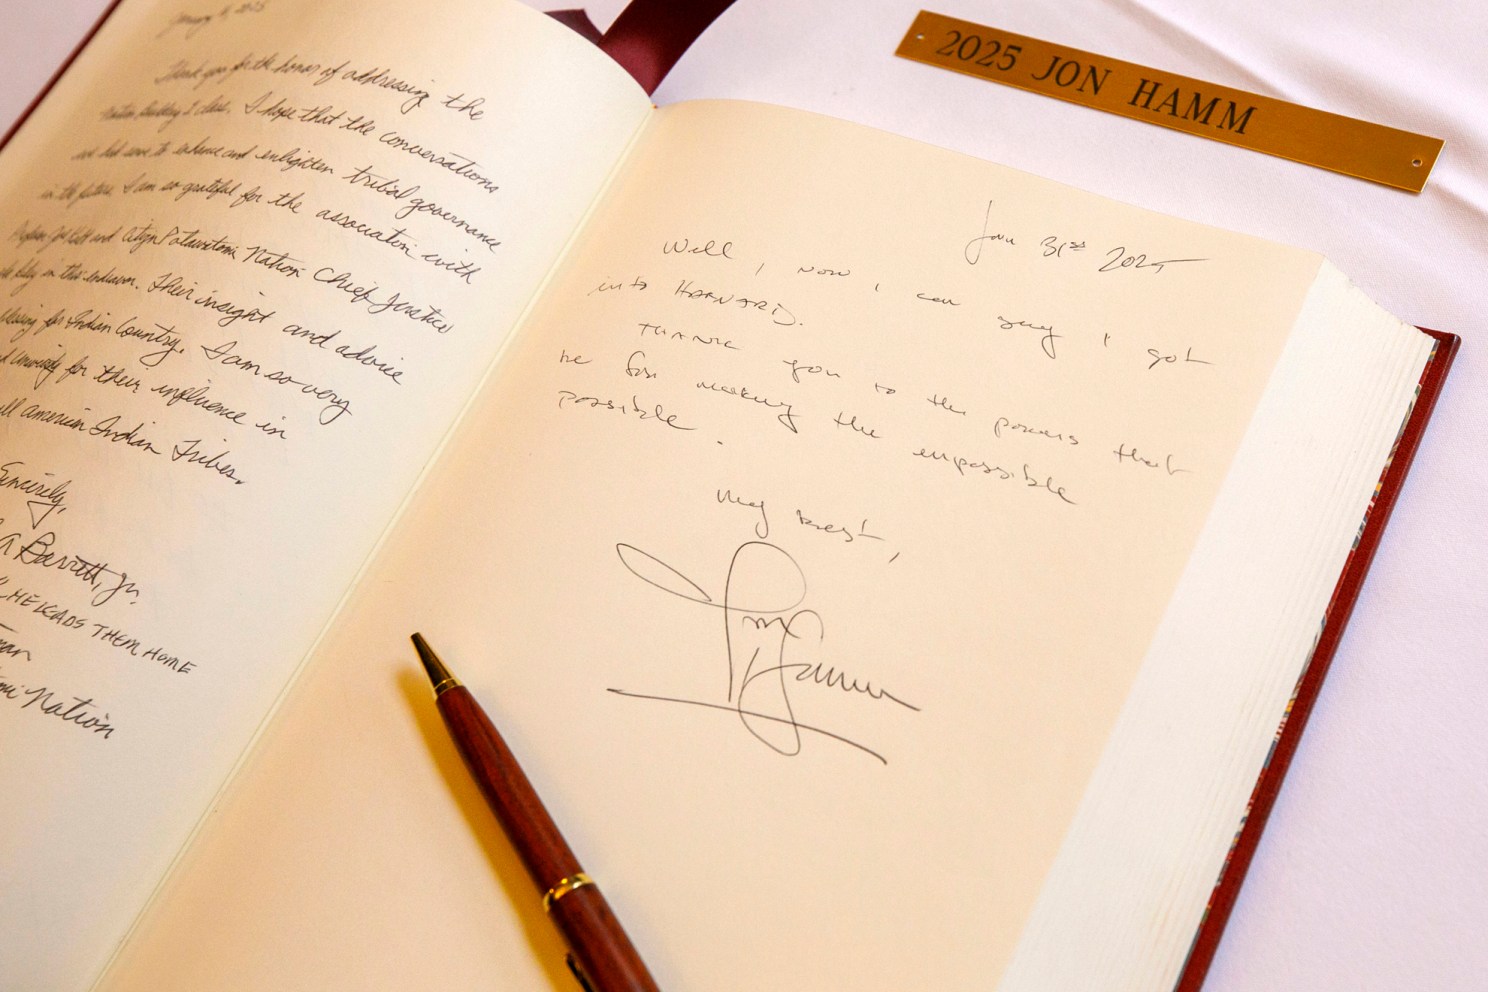 January 2025
Thank you for the honor of addressing the
Nation Building I class. I hope that the conversations
we had serve to enhance and enlighten tribal governance
in the future. I am so grateful for the association with
Professor and Citizen Potawatomi Nation Chief Justice
in this endeavor. Their insight and advice
for Indian Country. I am so very
University for their influence in
all American Indian Tribes.
Sincerely,
A Barrett, Jr.
"HE LEADS THEM HOME
Nation
2025 JON HAMM
Jan 31st 2025
Well, now I can say I got
into HARVARD.
THANK you to the powers that
be for making the impossible
possible.
My best,
Jon Hamm